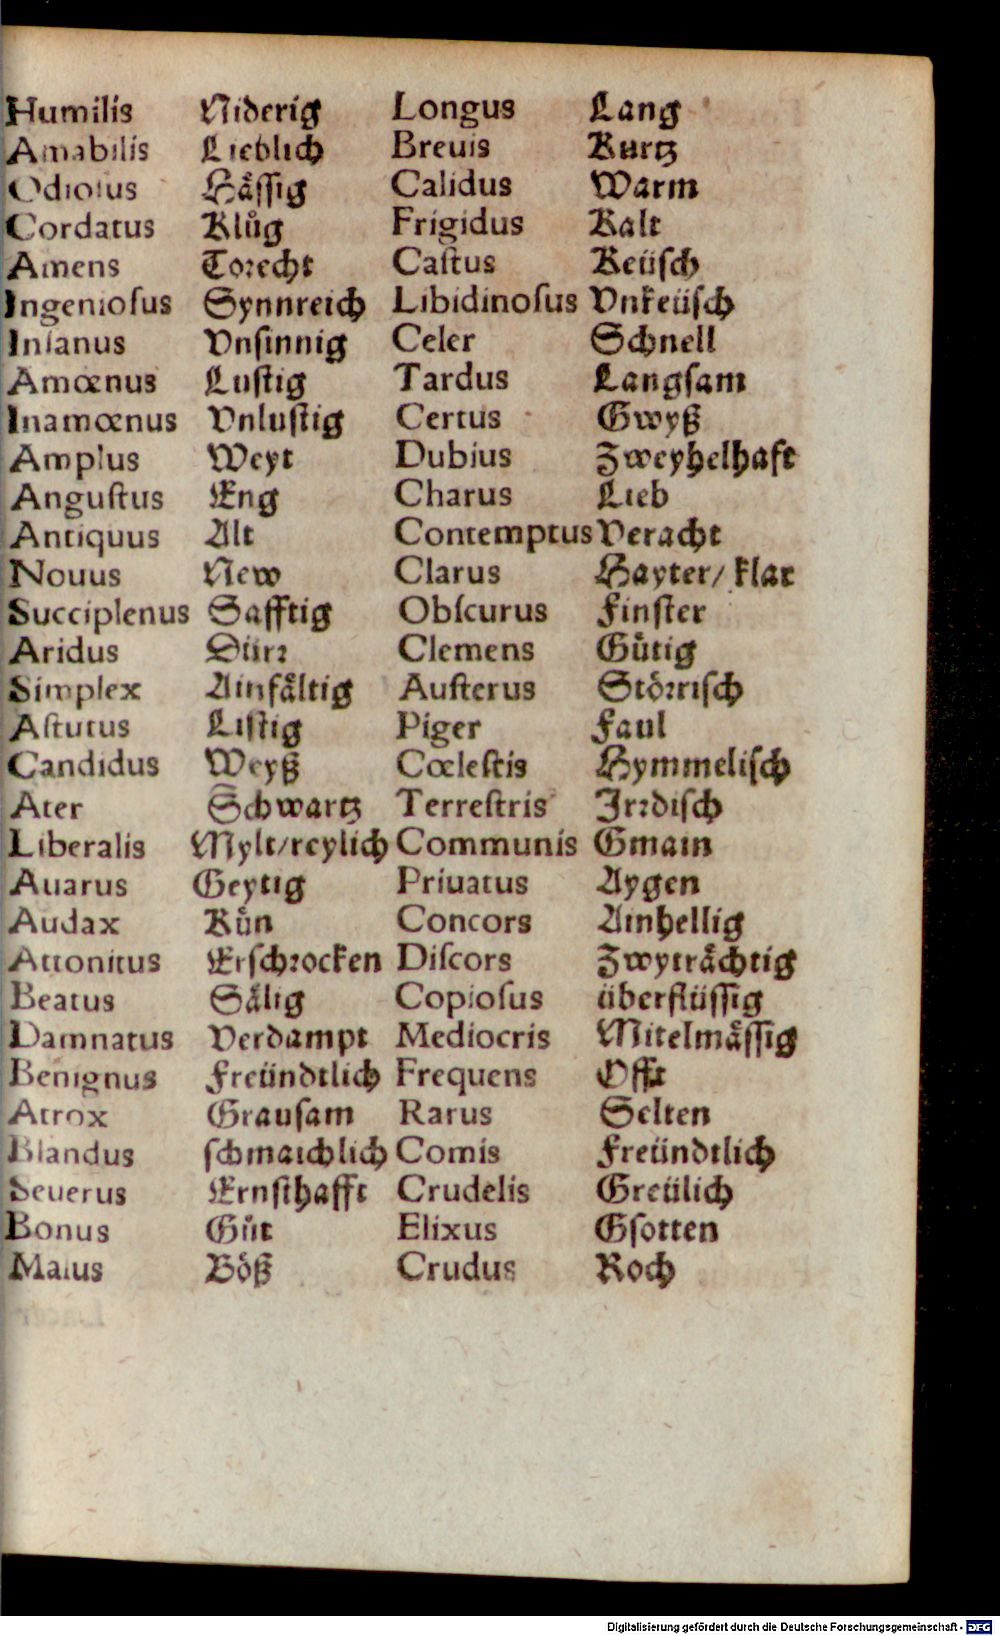 Humilis Niderig Longus Lang
Amabilis Lieblich Breuis Kurtz
Odioſus Håſſig Calidus Warm
Cordatus Klůg Frigidus Kalt
Amens Toꝛecht Caſtus Keüſch
Ingenioſus Synnreich Libidinoſus Vnkeüſch
Inſanus Vnſinnig Celer Schnell
Amœnus Luſtig Tardus Langſam
Inamœnus Vnluſtig Certus Gwyß
Amplus Weyt Dubius Zweyhelhaft
Anguſtus Eng Charus Lieb
Antiquus Alt Contemptus Veracht
Nouus New Clarus Hayter/ klar
Succiplenus Safftig Obſcurus Finſter
Aridus Dürꝛ Clemens Gůtig
Simplex Ainfåltig Auſterus Stöꝛriſch
Aſtutus Liſtig Piger Faul
Candidus Weyß Cœleſtis Hymmeliſch
Ater Schwartz Terreſtris Irꝛdiſch
Liberalis Mylt/reylich Communis Gmain
Auarus Geytig Priuatus Aygen
Audax Kůn Concors Ainhellig
Attonitus Erſchꝛocken Diſcors Zwytråchtig
Beatus Sålig Copioſus überflüſſig
Damnatus Verdampt Mediocris Mitelmåſſig
Benignus Freündtlich Frequens Offt
Atrox Grauſam Rarus Selten
Blandus ſchmaichlich Comis Freündtlich
Seuerus Ernſthafft Crudelis Greülich
Bonus Gůt Elixus Gſotten
Malus Böß Crudus Roch
Digitalisierung gefördert durch die Deutsche Forschungsgemeinschaft - DFG